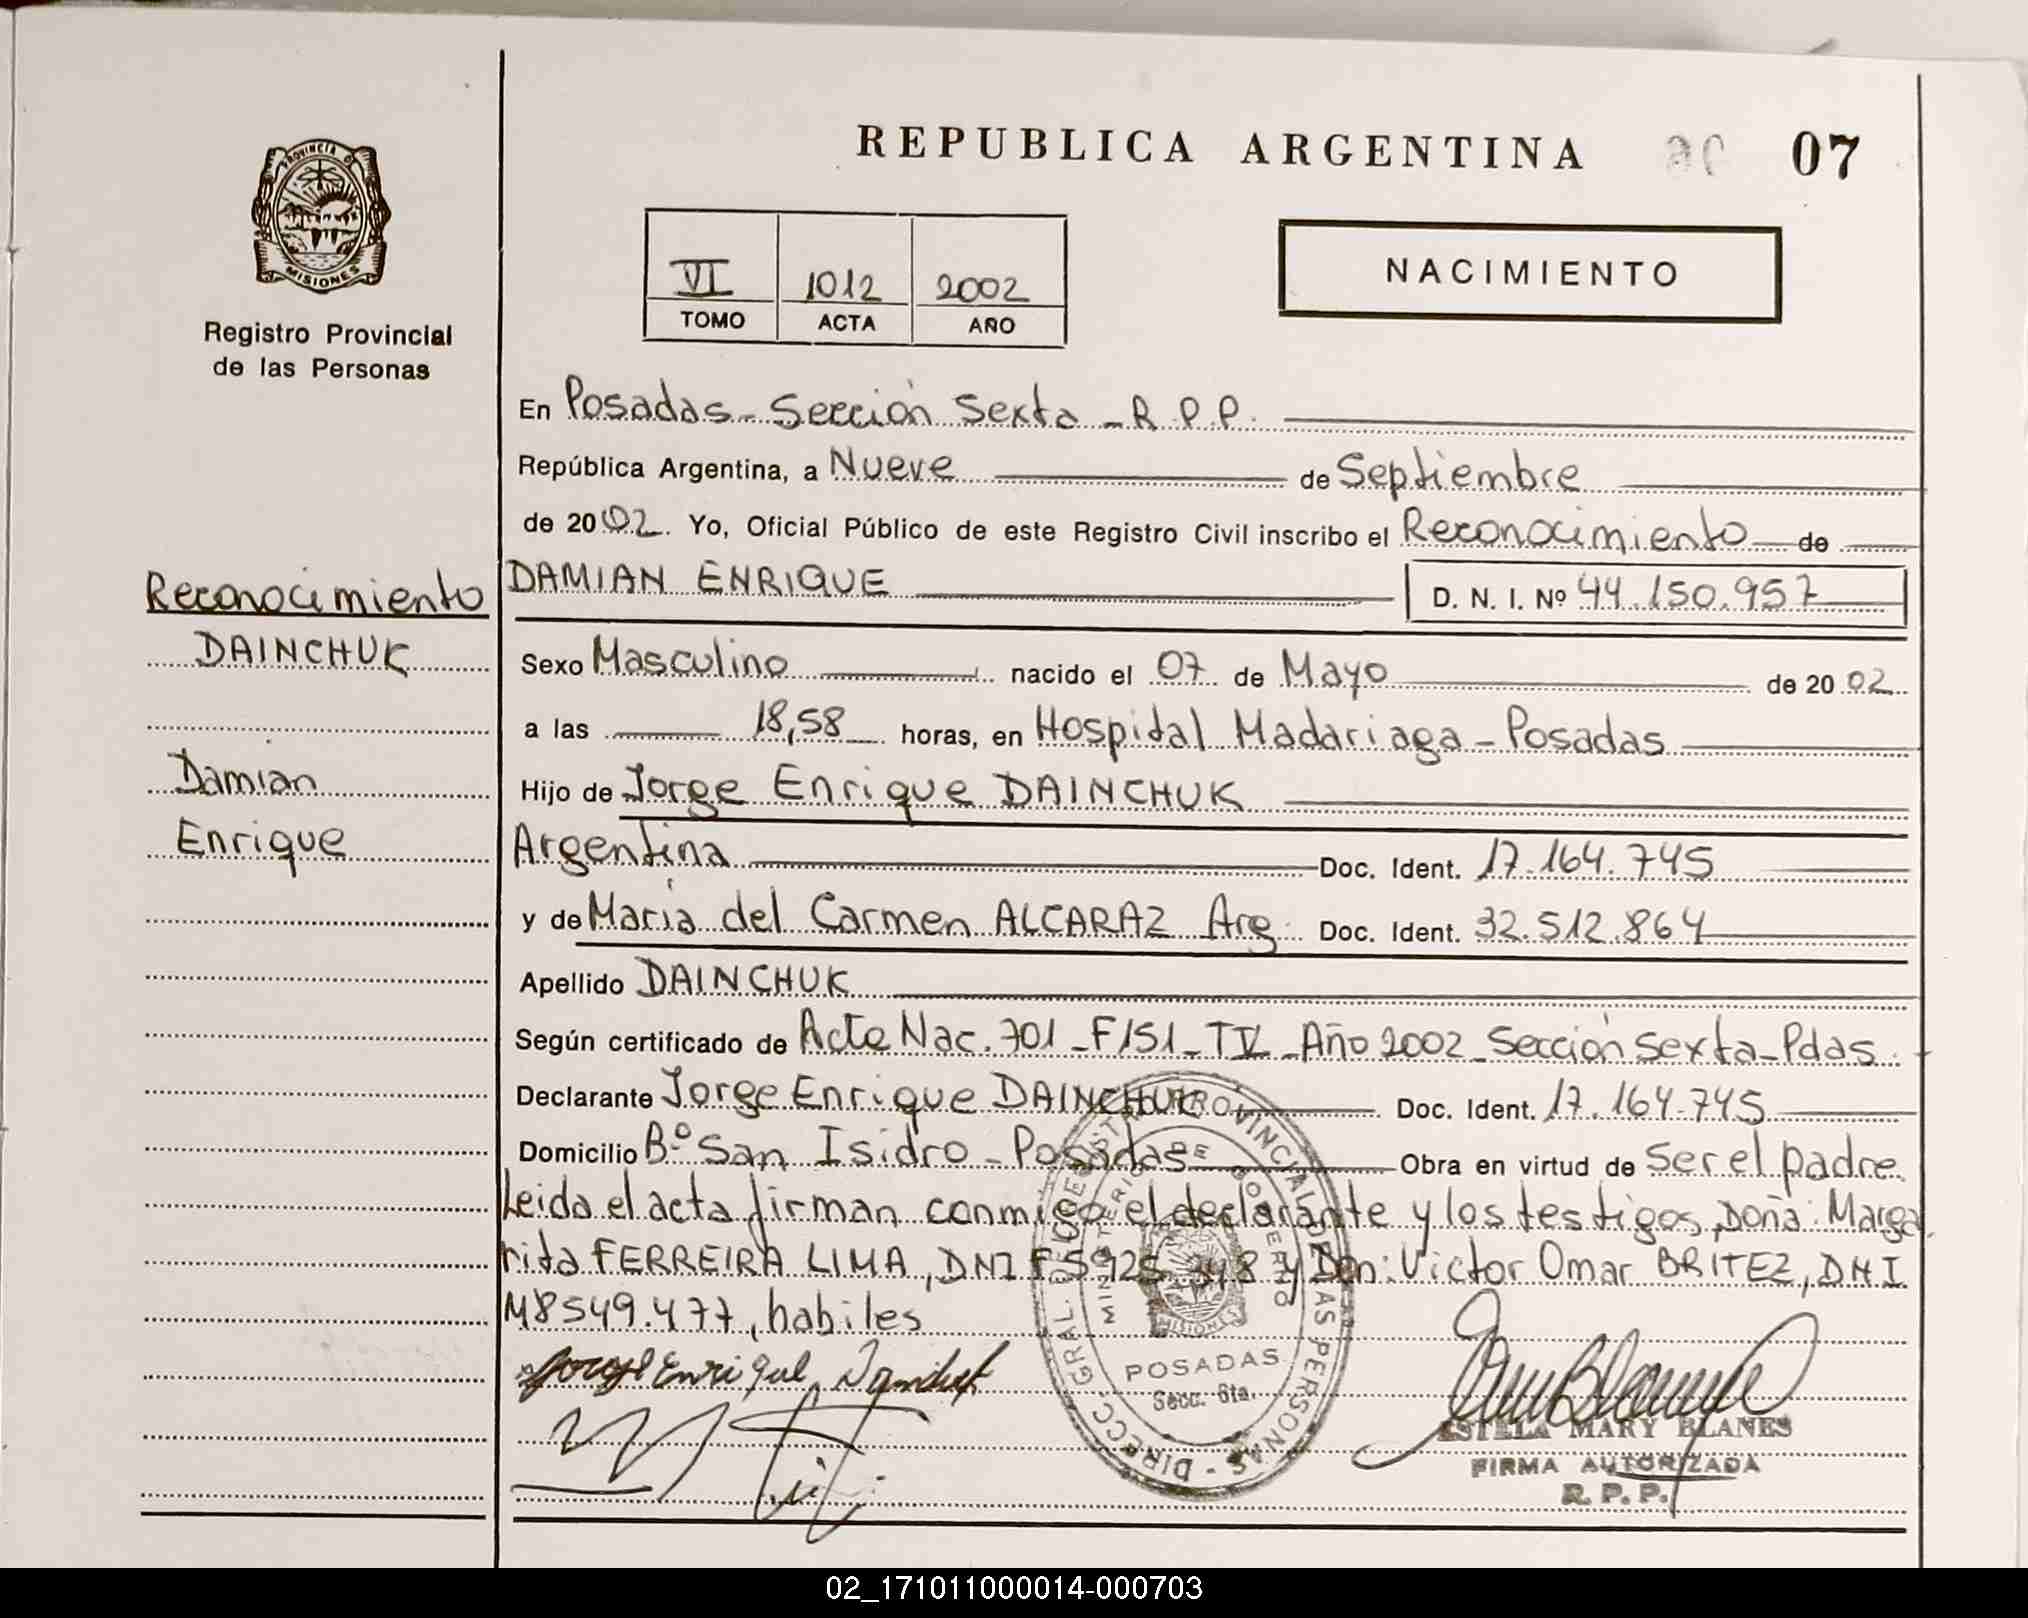 REPUBLICA ARGENTINA 07
PROVINCIA DE
MISIONES
Registro Provincial
de las Personas
VI 1012 2002
TOMO ACTA AÑO
NACIMIENTO
En Posadas - Sección Sexta - R.P.P.
República Argentina, a Nueve de Septiembre
de 2002. Yo, Oficial Público de este Registro Civil inscribo el Reconocimiento de
DAMIAN ENRIQUE D. N. I. Nº 44.150.957
Sexo Masculino nacido el 07 de Mayo de 2002
a las 18,58 horas, en Hospital Madariaga - Posadas
Hijo de Jorge Enrique DAINCHUK
Argentina Doc. Ident. 17.164.745
y de Maria del Carmen ALCARAZ Arg. Doc. Ident. 32.512.864
Apellido DAINCHUK
Según certificado de Acta Nac. 701 - F/51 - T IV - Año 2002 - Sección Sexta - Pdas.
Declarante Jorge Enrique DAINCHUK Doc. Ident. 17.164.745
Domicilio Bº San Isidro - Posadas Obra en virtud de ser el padre.
Leida el acta firman conmigo el declarante y los testigos, Doña: Marga
rita FERREIRA LIMA, DNI F5925 348 y Don: Victor Omar BRITEZ, DNI
M8549.477, habiles
Reconocimiento
DAINCHUK
Damian
Enrique
Jorge Enrique
DIRECC. GRAL. DEL REGISTRO PROVINCIAL DE LAS PERSONAS
MINISTERIO DE GOBIERNO
MISIONES
POSADAS
Secc. 6ta.
ESTELA MARY BLANES
FIRMA AUTORIZADA
R. P. P.
02_171011000014-000703